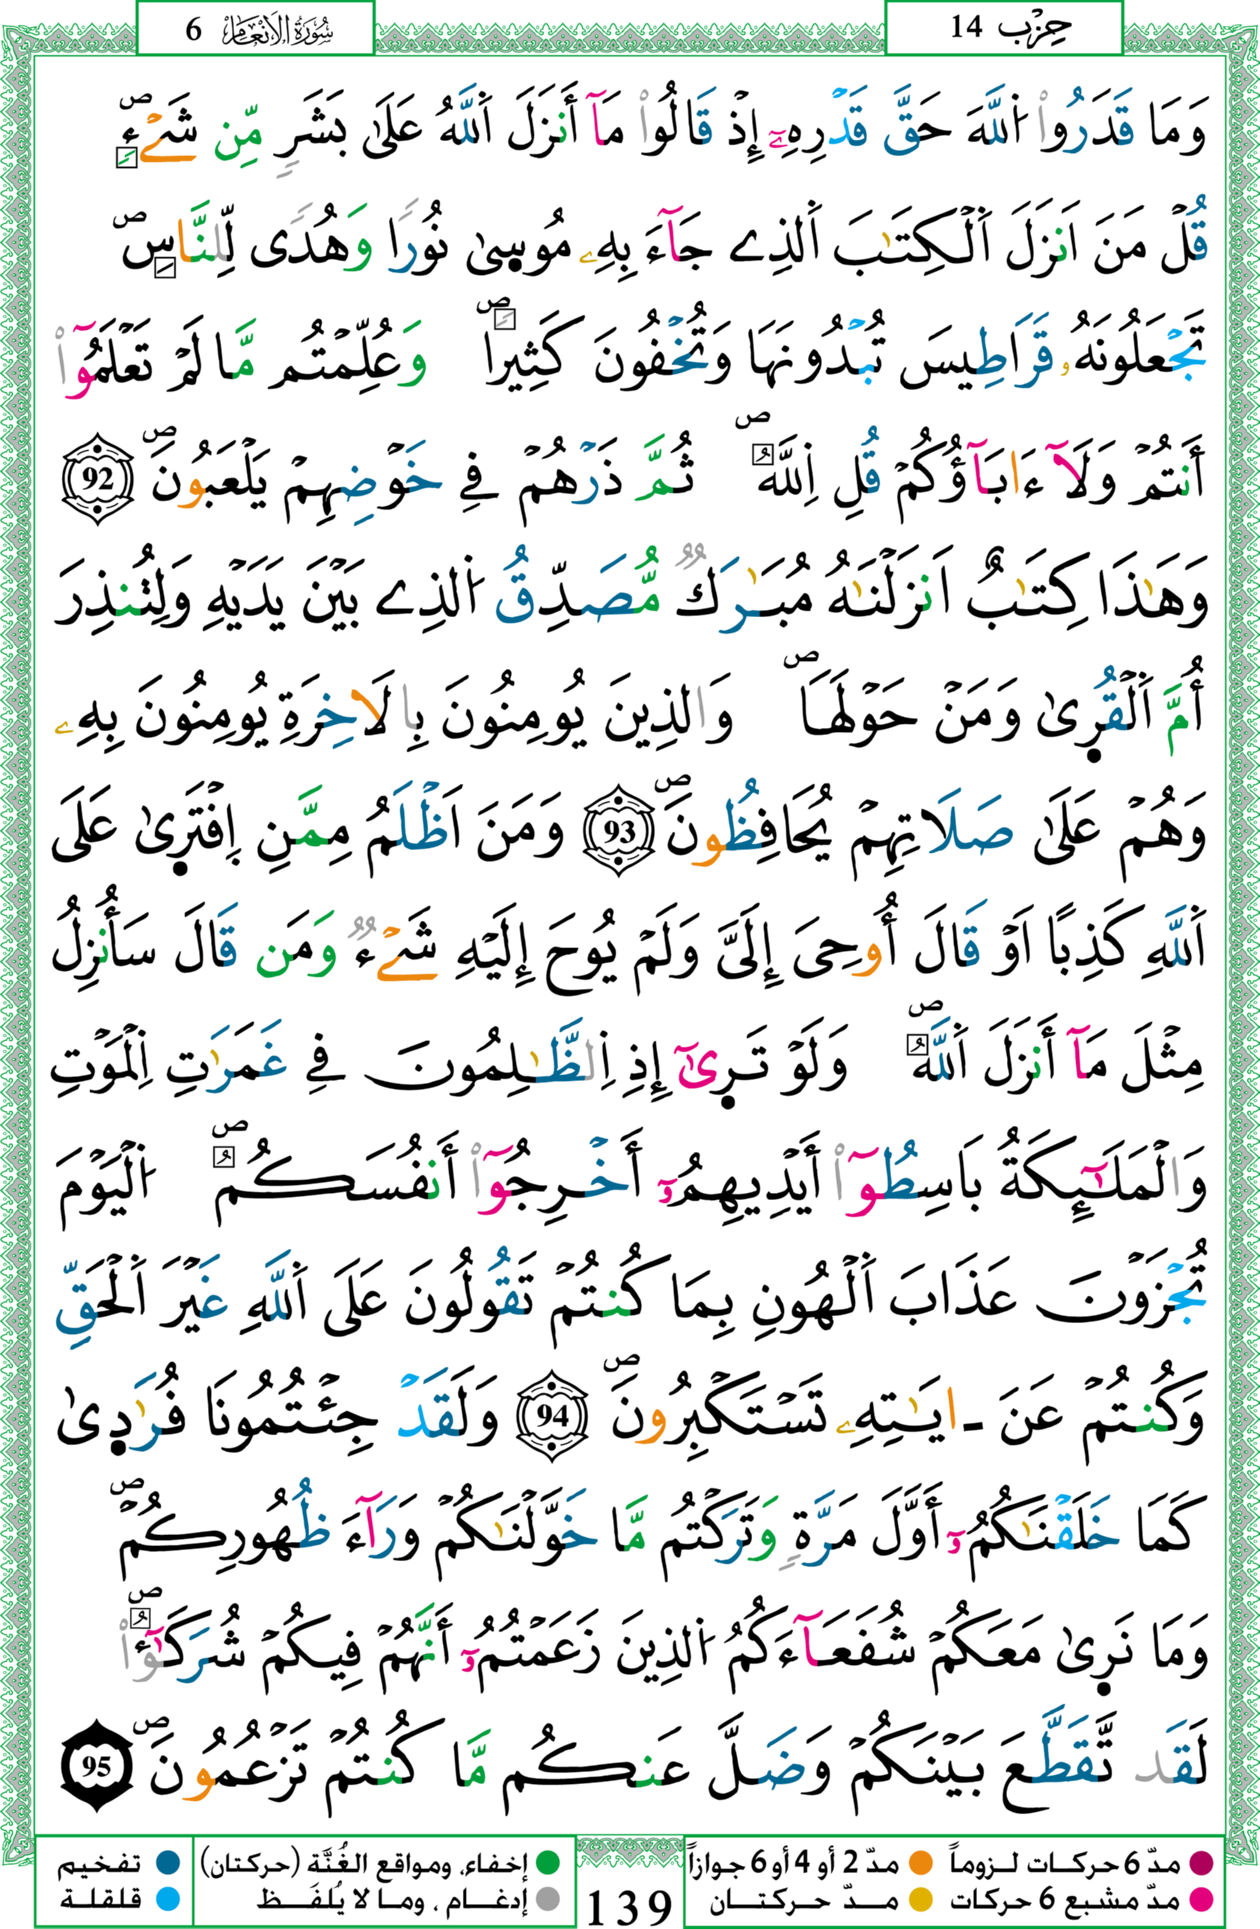 حِزْب 14
سُورَةُ الأَنْعَام 6
وَمَا قَدَرُواْ اُ۬للَّهَ حَقَّ قَدْرِهِۦٓ إِذْ قَالُواْ مَآ أَنزَلَ اَ۬للَّهُ عَلَىٰ بَشَرٖ مِّن شَےْءٖۖ
قُلْ مَنَ اَنزَلَ اَ۬لْكِتَٰبَ اَ۬لذِے جَآءَ بِهِۦ مُوس۪ىٰ نُوراٗ وَهُديٗ لِّلنَّاسِۖ
تَجْعَلُونَهُۥ قَرَاطِيسَ تُبْدُونَهَا وَتُخْفُونَ كَثِيراٗۖ وَعُلِّمْتُم مَّا لَمْ تَعْلَمُوٓاْ
أَنتُمْ وَلَآ ءَابَآؤُكُمْ قُلِ اِ۬للَّهُۖ ثُمَّ ذَرْهُمْ فِے خَوْضِهِمْ يَلْعَبُونَۖ 92
وَهَٰذَا كِتَٰبٌ اَنزَلْنَٰهُ مُبَٰرَكٞ مُّصَدِّقُ اُ۬لذِے بَيْنَ يَدَيْهِ وَلِتُنذِرَ
أُمَّ اَ۬لْقُر۪ىٰ وَمَنْ حَوْلَهَاۖ وَالذِينَ يُومِنُونَ بِالَاخِرَةِ يُومِنُونَ بِهِۦ
وَهُمْ عَلَىٰ صَلَاتِهِمْ يُحَافِظُونَۖ 93 وَمَنَ اَظْلَمُ مِمَّنِ اِ۪فْتَر۪ىٰ عَلَى
اَ۬للَّهِ كَذِباً اَوْ قَالَ أُوحِىَ إِلَىَّ وَلَمْ يُوحَ إِلَيْهِ شَےْءٞ وَمَن قَالَ سَأُنزِلُ
مِثْلَ مَآ أَنزَلَ اَ۬للَّهُۖ وَلَوْ تَر۪ىٰٓ إِذِ اِ۬لظَّٰلِمُونَ فِے غَمَرَٰتِ اِ۬لْمَوْتِ
وَالْمَلَٰٓئِكَةُ بَاسِطُوٓاْ أَيْدِيهِمُۥٓ أَخْرِجُوٓاْ أَنفُسَكُمُۖ اُ۬لْيَوْمَ
تُجْزَوْنَ عَذَابَ اَ۬لْهُونِ بِمَا كُنتُمْ تَقُولُونَ عَلَى اَ۬للَّهِ غَيْرَ اَ۬لْحَقِّ
وَكُنتُمْ عَنَ ـ ايَٰتِهِۦ تَسْتَكْبِرُونَۖ 94 وَلَقَدْ جِئْتُمُونَا فُرَٰد۪ىٰ
كَمَا خَلَقْنَٰكُمُۥٓ أَوَّلَ مَرَّةٖ وَتَرَكْتُم مَّا خَوَّلْنَٰكُمْ وَرَآءَ ظُهُورِكُمْۖ
وَمَا نَر۪ىٰ مَعَكُمْ شُفَعَآءَكُمُ اُ۬لذِينَ زَعَمْتُمُۥٓ أَنَّهُمْ فِيكُمْ شُرَكَٰٓؤُاْۖ
لَقَد تَّقَطَّعَ بَيْنَكُمْ وَضَلَّ عَنكُم مَّا كُنتُمْ تَزْعُمُونَۖ 95
مدّ 6 حركات لـزومـاً مدّ 2 أو 4 أو 6 جوازاً إخفاء، ومواقع الغُنَّة (حركتان) تفخيم
مدّ مشبع 6 حركات مـدّ حـركـتـان إدغـام ، ومـا لا يُلفَـظ قلقلة
139